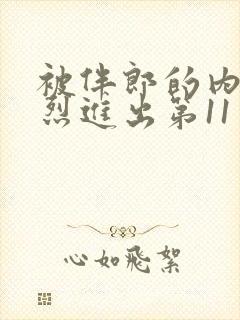 被伴郎的内
烈进出第11
心如飛絮